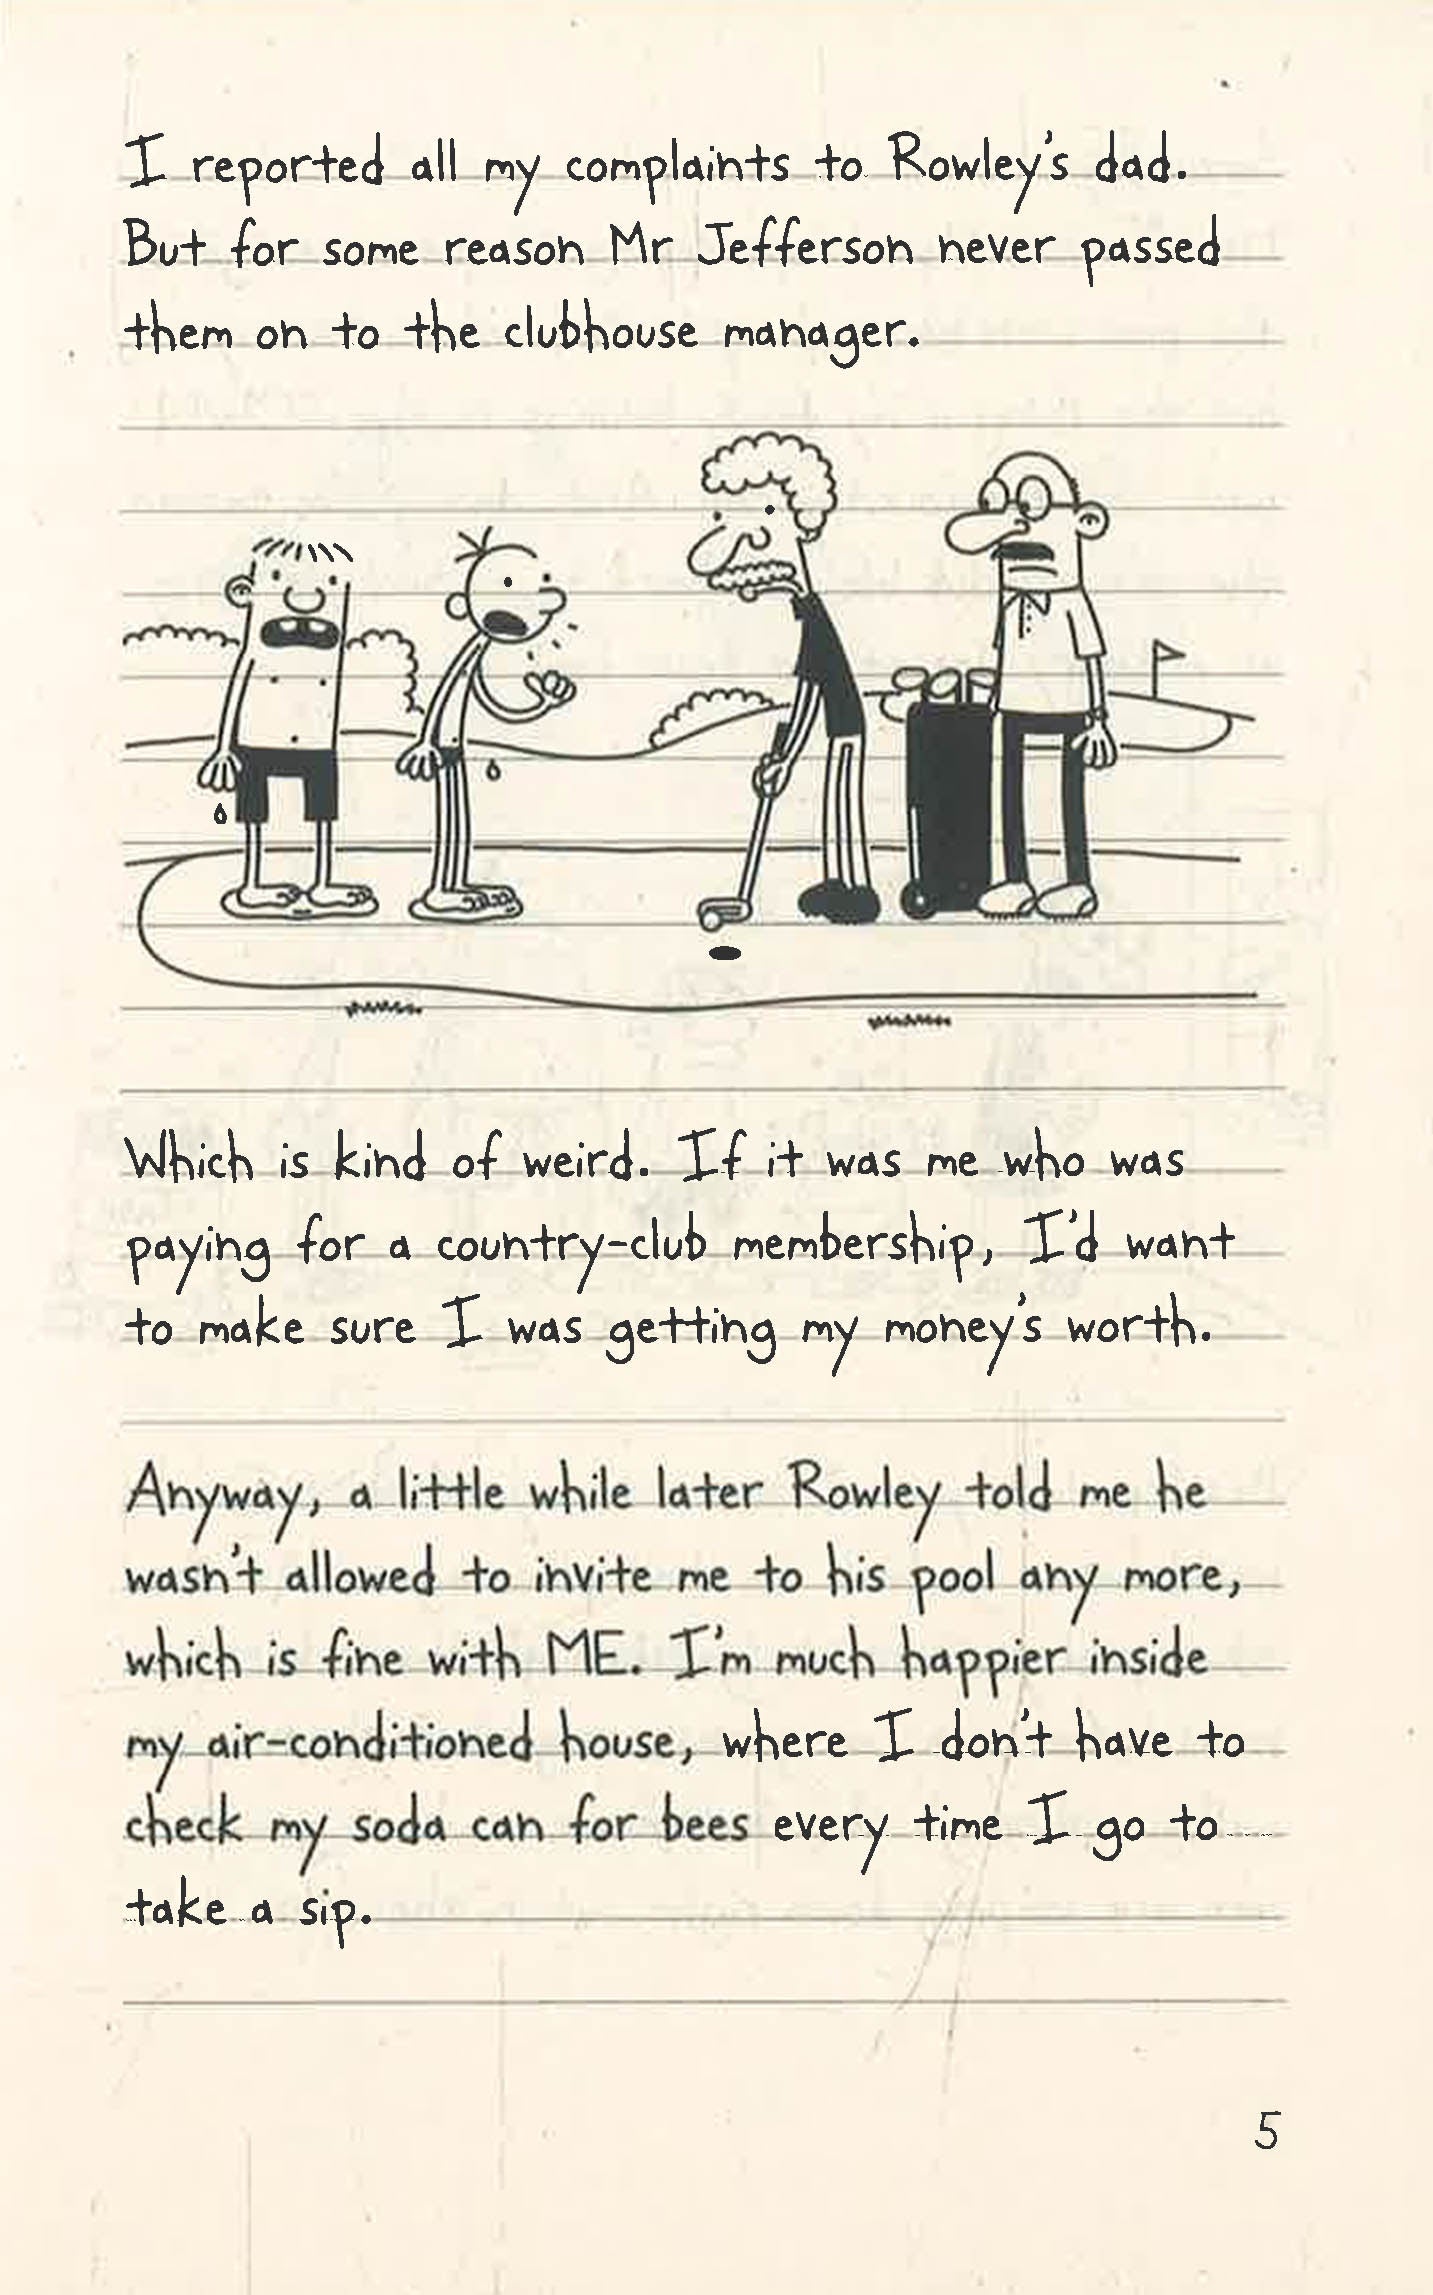 I reported all my complaints to Rowley's dad.
But for some reason Mr Jefferson never passed
them on to the clubhouse manager.
Which is kind of weird. If it was me who was
paying for a country-club membership, I'd want
to make sure I was getting my money's worth.
Anyway, a little while later Rowley told me he
wasn't allowed to invite me to his pool any more,
which is fine with ME. I'm much happier inside
my air-conditioned house, where I don't have to
check my soda can for bees every time I go to
take a sip.
5